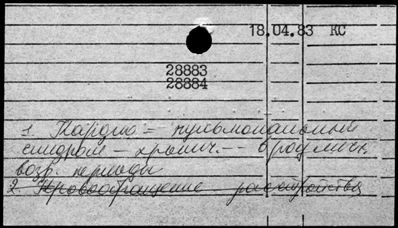 18.04.83 КС
28883
28884
1. Кардио - пульмональный
синдром - хронич. -- в различн.
возр. периоды
2. Кровообращение расстройства